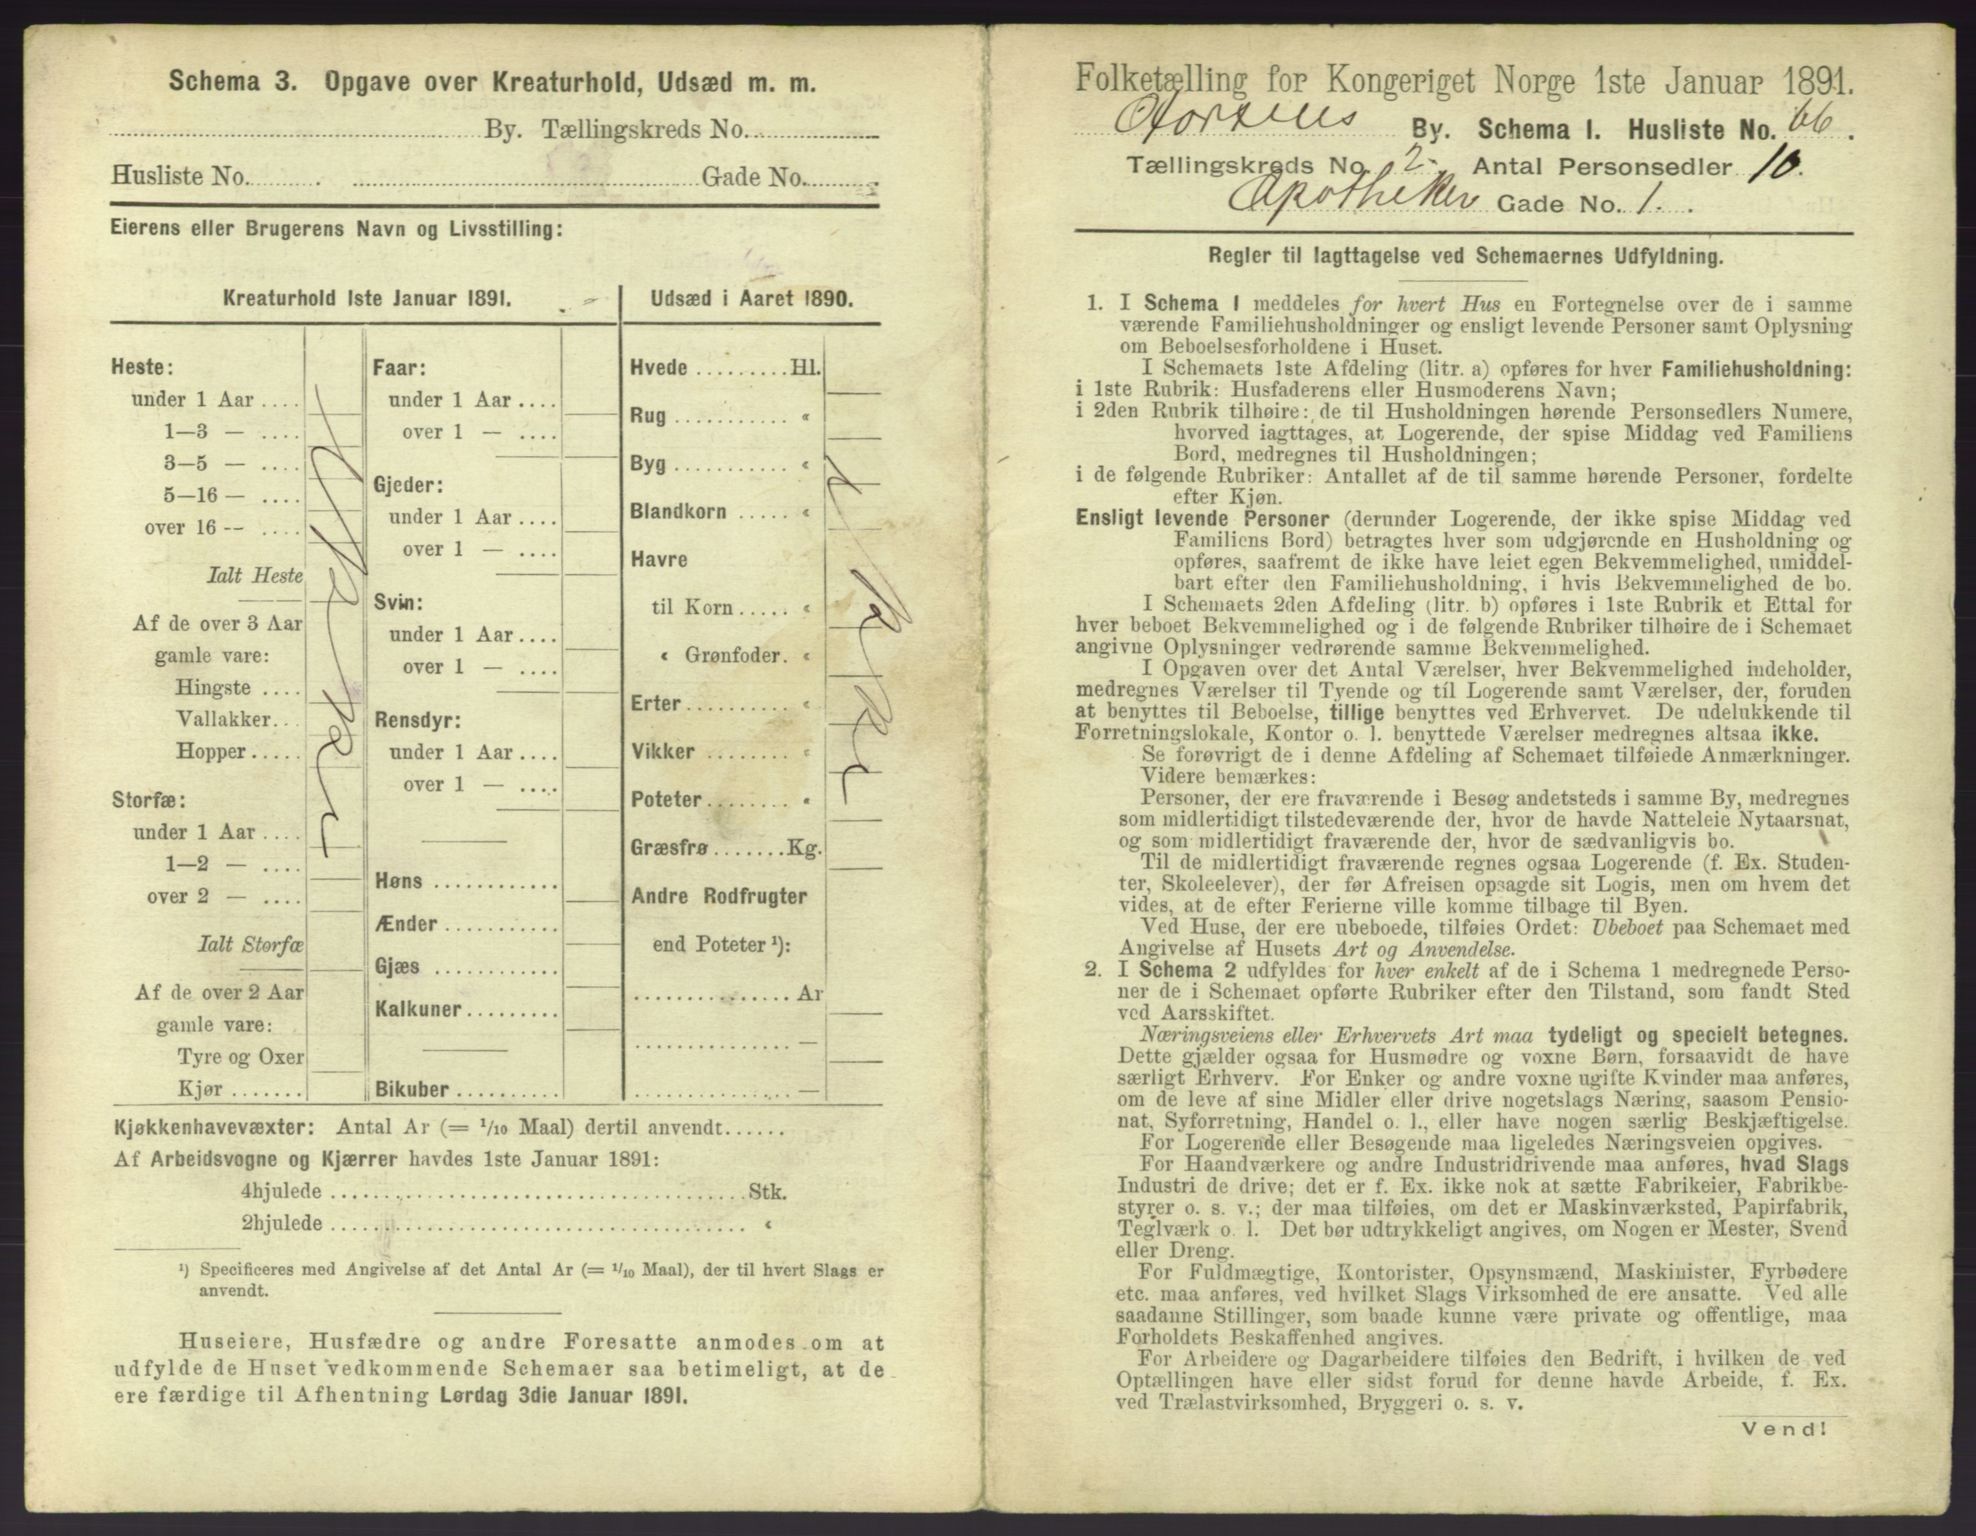 Schema 3. Opgave over Kreaturhold, Udsæd m. m.
By. Tællingskreds No.
Husliste No. Gade No.
Eierens eller Brugerens Navn og Livsstilling:
Kreaturhold 1ste Januar 1891.
Heste:
under 1 Aar
1—3 —
3—5 —
5—16 —
over 16 --
Ialt Heste
Af de over 3 Aar
gamle vare:
Hingste
Vallakker
Hopper
Storfæ:
under 1 Aar
1—2 —
over 2 —
Ialt Storfæ
Af de over 2 Aar
gamle vare:
Tyre og Oxer
Kjør
Faar:
under 1 Aar
over 1 —
Gjeder:
under 1 Aar
over 1 —
Svin:
under 1 Aar
over 1 —
Rensdyr:
under 1 Aar
over 1 —
Høns
Ænder
Gjæs
Kalkuner
Bikuber
Udsæd i Aaret 1890.
Hvede Hl.
Rug «
Byg «
Blandkorn «
Havre
til Korn «
« Grønfoder. «
Erter «
Vikker «
Poteter «
Græsfrø Kg.
Andre Rodfrugter
end Poteter ¹):
Ar
—
—
Kjøkkenhavevæxter: Antal Ar (= 1/10 Maal) dertil anvendt
Af Arbeidsvogne og Kjærrer havdes 1ste Januar 1891:
4hjulede Stk.
2hjulede «
¹) Specificeres med Angivelse af det Antal Ar (= 1/10 Maal), der til hvert Slags er
anvendt.
Huseiere, Husfædre og andre Foresatte anmodes om at
udfylde de Huset vedkommende Schemaer saa betimeligt, at de
ere færdige til Afhentning Lørdag 3die Januar 1891.
Folketælling for Kongeriget Norge 1ste Januar 1891.
By. Schema I. Husliste No. 66.
Tællingskreds No. 2. Antal Personsedler 10.
Apotheker Gade No. 1.
Regler til Iagttagelse ved Schemaernes Udfyldning.
1. I Schema 1 meddeles for hvert Hus en Fortegnelse over de i samme
værende Familiehusholdninger og ensligt levende Personer samt Oplysning
om Beboelsesforholdene i Huset.
I Schemaets 1ste Afdeling (litr. a) opføres for hver Familiehusholdning:
i 1ste Rubrik: Husfaderens eller Husmoderens Navn;
i 2den Rubrik tilhøire: de til Husholdningen hørende Personsedlers Numere,
hvorved iagttages, at Logerende, der spise Middag ved Familiens
Bord, medregnes til Husholdningen;
i de følgende Rubriker: Antallet af de til samme hørende Personer, fordelte
efter Kjøn.
Ensligt levende Personer (derunder Logerende, der ikke spise Middag ved
Familiens Bord) betragtes hver som udgjørende en Husholdning og
opføres, saafremt de ikke have leiet egen Bekvemmelighed, umiddel-
bart efter den Familiehusholdning, i hvis Bekvemmelighed de bo.
I Schemaets 2den Afdeling (litr. b) opføres i 1ste Rubrik et Ettal for
hver beboet Bekvemmelighed og i de følgende Rubriker tilhøire de i Schemaet
angivne Oplysninger vedrørende samme Bekvemmelighed.
I Opgaven over det Antal Værelser, hver Bekvemmelighed indeholder,
medregnes Værelser til Tyende og til Logerende samt Værelser, der, foruden
at benyttes til Beboelse, tillige benyttes ved Erhvervet. De udelukkende til
Forretningslokale, Kontor o. l. benyttede Værelser medregnes altsaa ikke.
Se forøvrigt de i denne Afdeling af Schemaet tilføiede Anmærkninger.
Videre bemærkes:
Personer, der ere fraværende i Besøg andetsteds i samme By, medregnes
som midlertidigt tilstedeværende der, hvor de havde Natteleie Nytaarsnat,
og som midlertidigt fraværende der, hvor de sædvanligvis bo.
Til de midlertidigt fraværende regnes ogsaa Logerende (f. Ex. Studen-
ter, Skoleelever), der før Afreisen opsagde sit Logis, men om hvem det
vides, at de efter Ferierne ville komme tilbage til Byen.
Ved Huse, der ere ubeboede, tilføies Ordet: Ubeboet paa Schemaet med
Angivelse af Husets Art og Anvendelse.
2. I Schema 2 udfyldes for hver enkelt af de i Schema 1 medregnede Perso-
ner de i Schemaet opførte Rubriker efter den Tilstand, som fandt Sted
ved Aarsskiftet.
Næringsveiens eller Erhvervets Art maa tydeligt og specielt betegnes.
Dette gjælder ogsaa for Husmødre og voxne Børn, forsaavidt de have
særligt Erhverv. For Enker og andre voxne ugifte Kvinder maa anføres,
om de leve af sine Midler eller drive nogetslags Næring, saasom Pensio-
nat, Syforretning, Handel o. l., eller have nogen særlig Beskjæftigelse.
For Logerende eller Besøgende maa ligeledes Næringsveien opgives.
For Haandværkere og andre Industridrivende maa anføres, hvad Slags
Industri de drive; det er f. Ex. ikke nok at sætte Fabrikeier, Fabrikbe-
styrer o. s. v.; der maa tilføies, om det er Maskinværksted, Papirfabrik,
Teglværk o. l. Det bør udtrykkeligt angives, om Nogen er Mester, Svend
eller Dreng.
For Fuldmægtige, Kontorister, Opsynsmænd, Maskinister, Fyrbødere
etc. maa anføres, ved hvilket Slags Virksomhed de ere ansatte. Ved alle
saadanne Stillinger, som baade kunne være private og offentlige, maa
Forholdets Beskaffenhed angives.
For Arbeidere og Dagarbeidere tilføies den Bedrift, i hvilken de ved
Optællingen have eller sidst forud for denne havde Arbeide, f. Ex.
ved Trælastvirksomhed, Bryggeri o. s. v.
Vend!